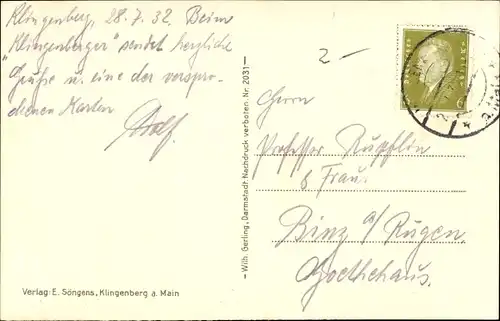 Klingenberg, 28.7.32. Beim
„Klingenberger" sendet herzliche
Grüße u. eine der verspro-
chenen Karten
Wolf.
2-
Herrn
Professor
& Frau.
Binz a/Rügen.
Goethehaus.
—Wilh. Gerling, Darmstadt Nachdruck verboten Nr. 2031—
Verlag: E. Söngens, Klingenberg a. Main